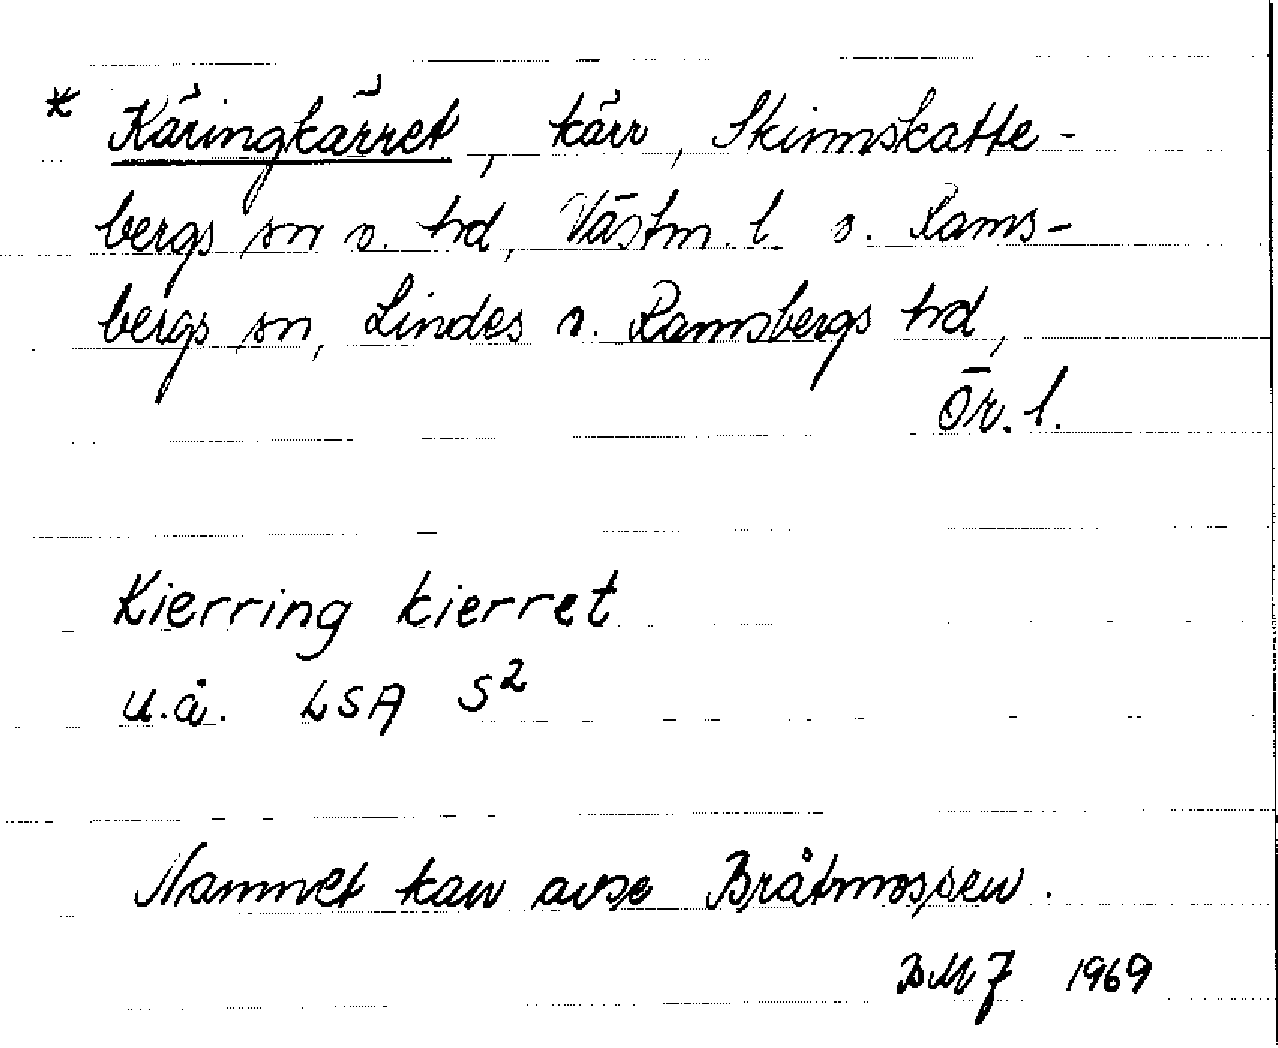 * Käringkärret, kärr, Skinnskatte-
bergs sn o. hd, Västm. l. o. Rams-
bergs sn, Lindes o. Ramsbergs hd,
Ör. l.
Kierring kierret
u.å. LSA S²
Namnet kan avse Bråtmossen.
BMJ 1969